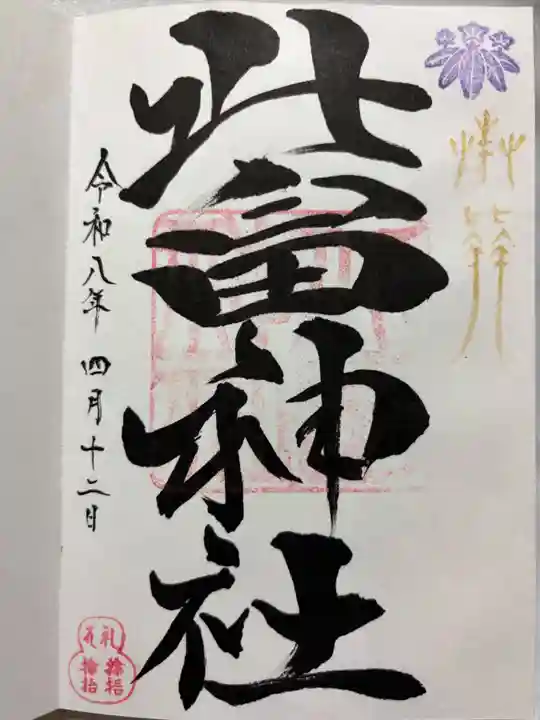 奉拝
北畠神社
令和八年 四月十二日